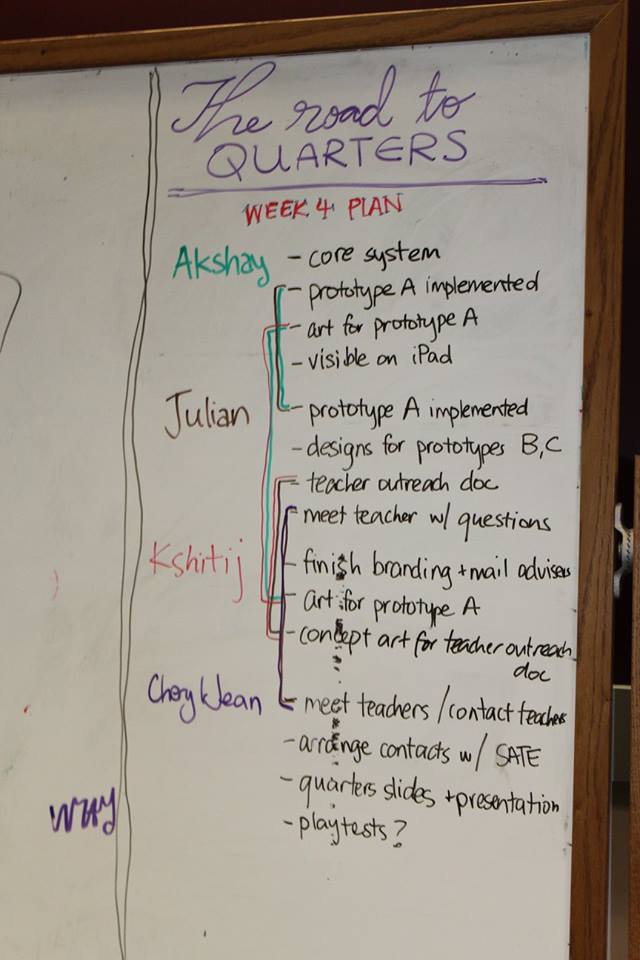 The road to
QUARTERS
WEEK 4 PLAN
Akshay - core system
- prototype A implemented
- art for prototype A
- visible on iPad
Julian - prototype A implemented
- designs for prototypes B,C
- teacher outreach doc
- meet teacher w/ questions
Kshitij - finish branding + mail advisers
- art for prototype A
- concept art for teacher outreach
doc
- meet teachers / contact teachers
- arrange contacts w/ SATE
- quarters slides + presentation
- playtests?
WHY